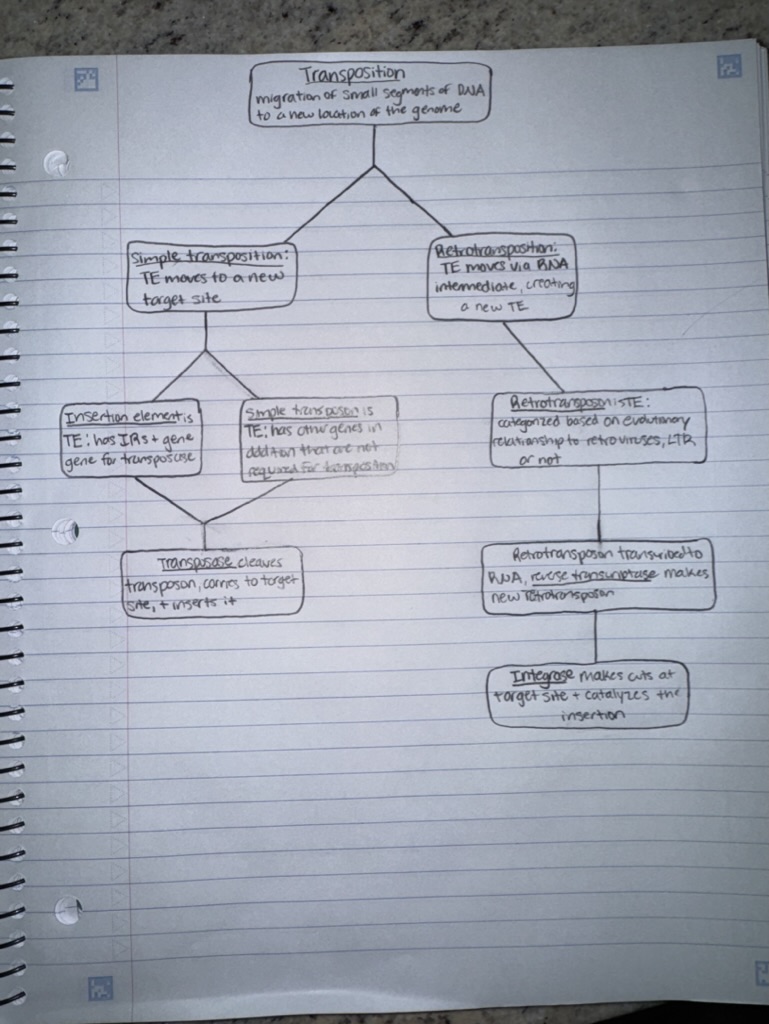 Transposition
migration of small segments of DNA
to a new location of the genome
Simple transposition:
TE moves to a new
target site
Retrotransposition:
TE moves via RNA
intermediate, creating
a new TE
Insertion element is
TE: has IRs + gene
gene for transposase
Simple transposon is
TE: has other genes in
addition that are not
required for transposition
Retrotransposon is TE:
categorized based on evolutionary
relationship to retroviruses, LTR
or not
Transposase cleaves
transposon, carries to target
site, + inserts it
Retrotransposon transcribed to
RNA, reverse transcriptase makes
new retrotransposon
Integrase makes cuts at
target site + catalyzes the
insertion